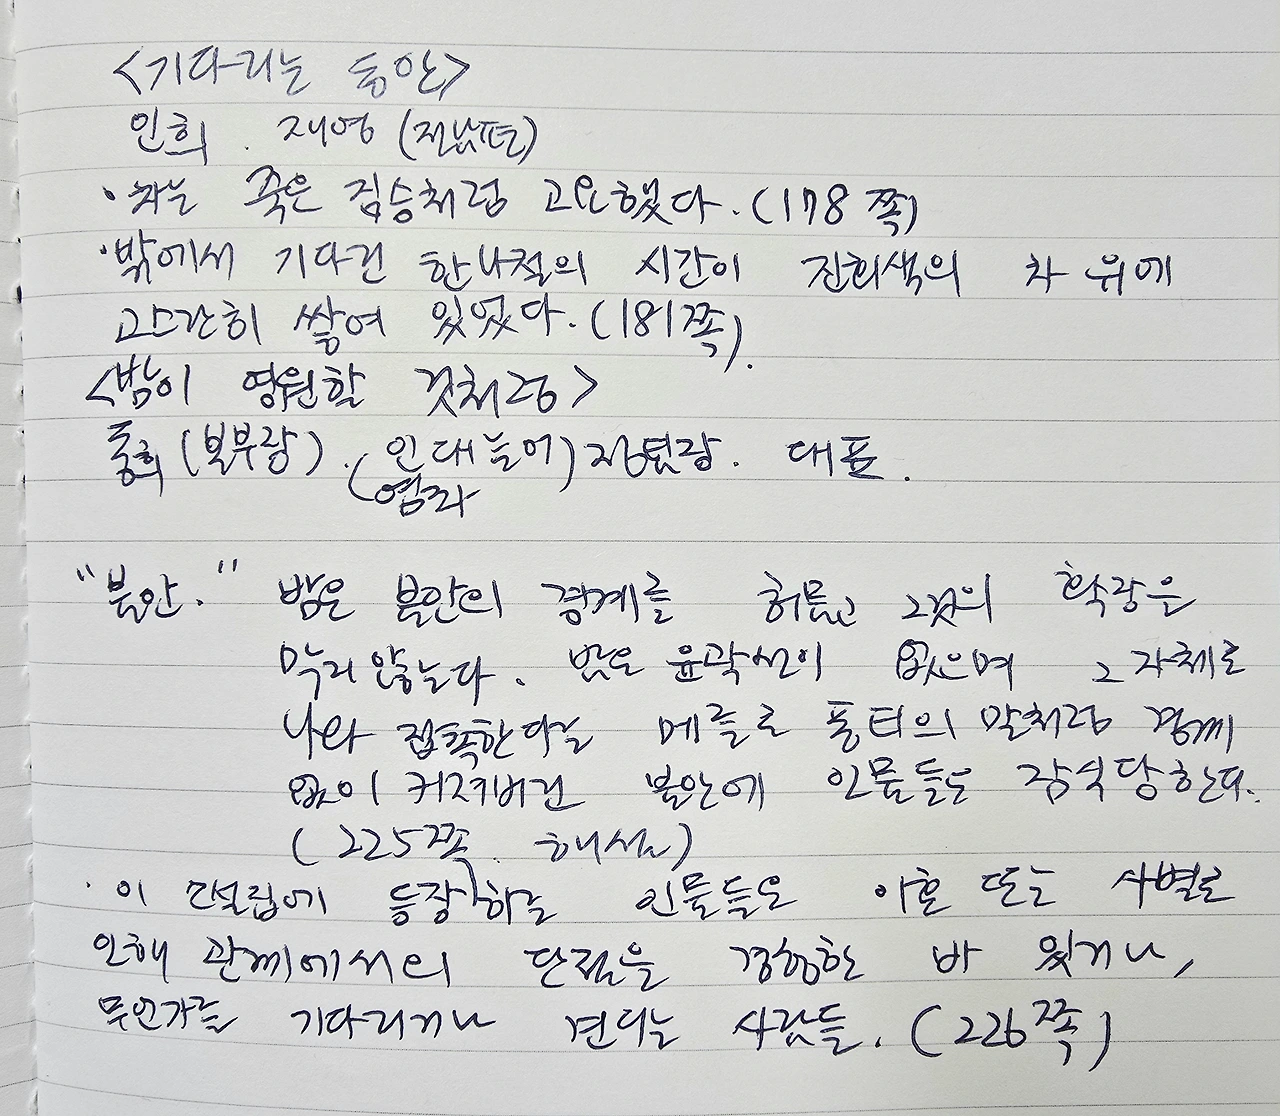 <기다리는 동안>
인희. 재영 (전남편)
· 차는 죽은 짐승처럼 고요했다. (178쪽)
· 밖에서 기다린 한나절의 시간이 진회색의 차 위에
고스란히 쌓여 있었다. (181쪽).
<밤이 영원할 것처럼>
동희 (복부장). (인대늘어) 정팀장. 대표.
(염좌
"불안." 밤은 불안의 경계를 허물고 그것의 확장은
막지 않는다. 밤은 윤곽선이 없으며 그 자체로
나와 접촉한다는 메를로 퐁티의 말처럼 경계
없이 커져버린 불안에 인물들은 잠식당한다.
(225쪽. 해설)
· 이 소설집에 등장하는 인물들은 이혼 또는 사별로
인해 관계에서의 단절을 경험한 바 있거나,
무언가를 기다리거나 견디는 사람들. (226쪽)